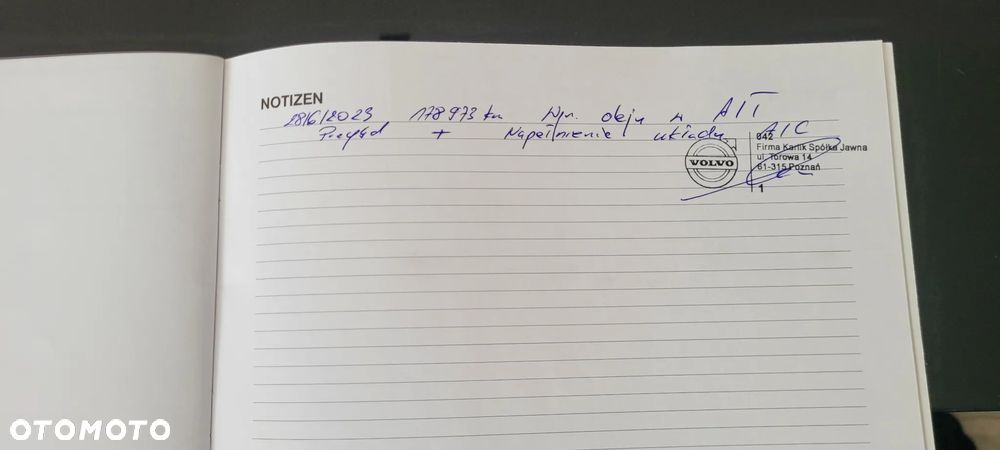 NOTIZEN
28/6/2023 178973 km Wym. oleju w A/T
Przegląd + Napełnienie układu A/C
042
Firma Karlik Spółka Jawna
VOLVO
ul. Torowa 14
61-315 Poznań
1
OTOMOTO